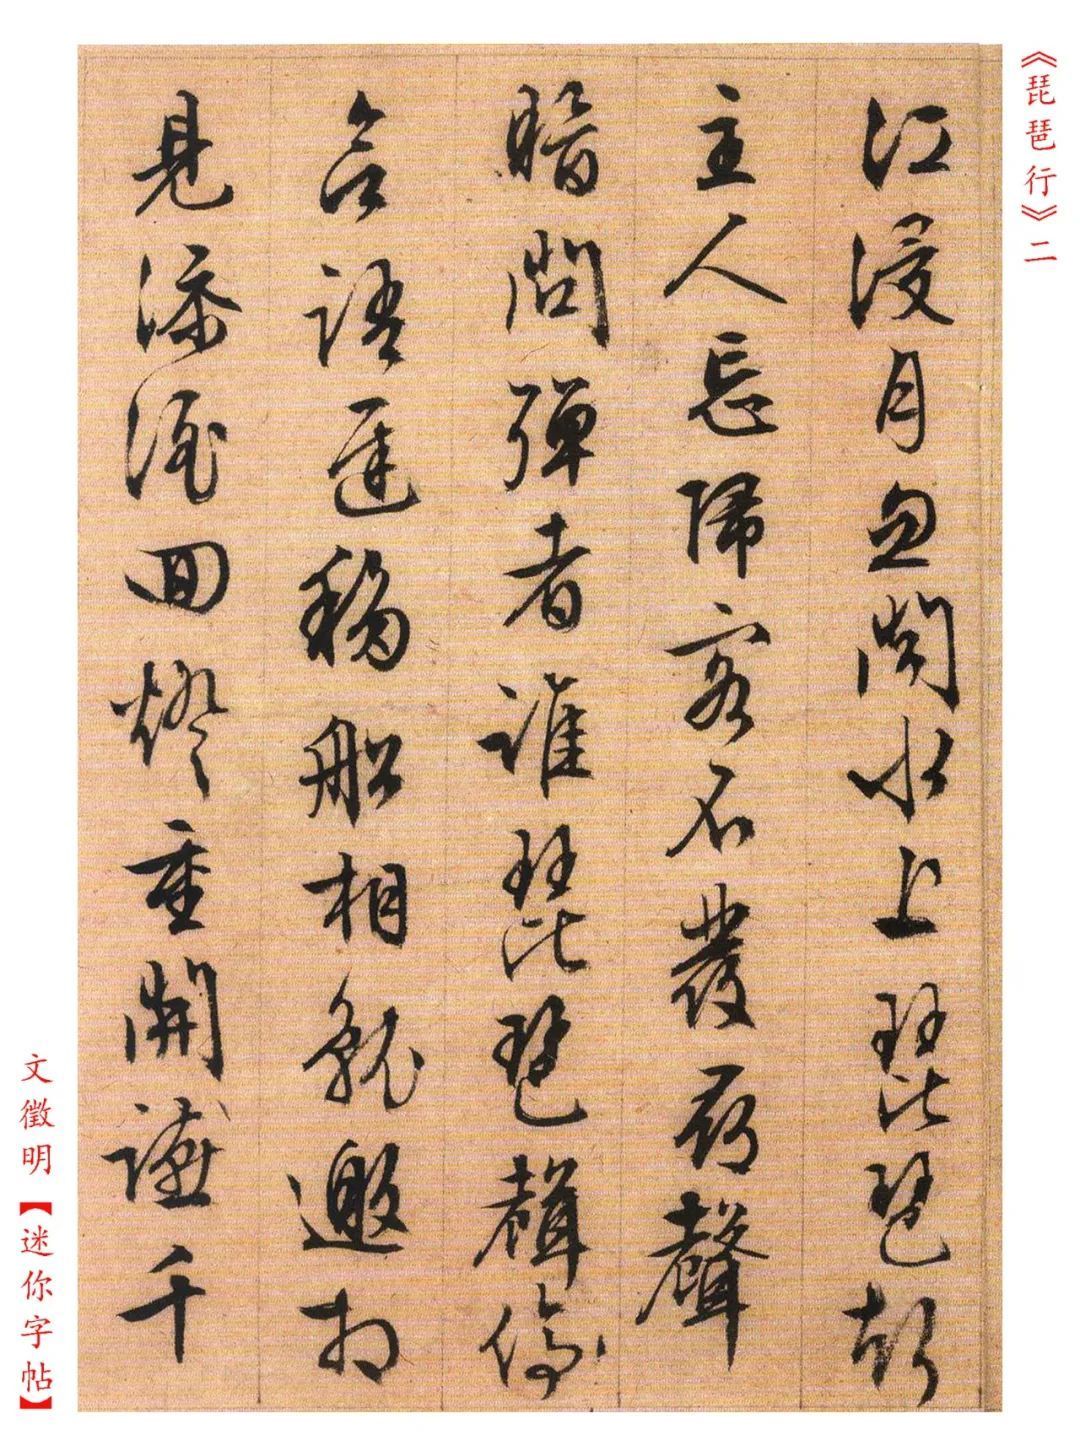 《琵琶行》二
江浸月忽聞水上琵琶聲
主人忘歸客不發尋聲
暗問彈者誰琵琶聲停
含語遲移船相就邀相
見添酒回燈重開讌千
文徵明【迷你字帖】